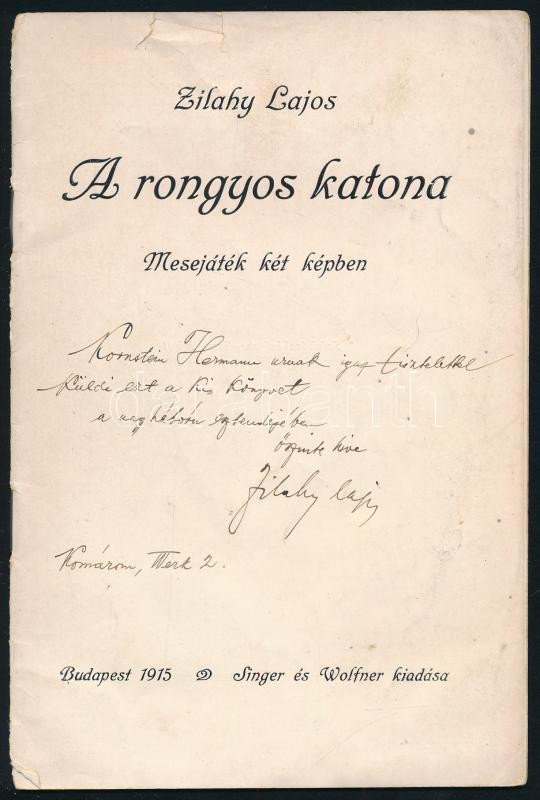 Zilahy Lajos
A rongyos katona
Mesejáték két képben
Kornstein Hermann urnak igaz tisztelettel
küldi ezt a kis könyvet
a nagy háború esztendejében
őszinte híve
Zilahy Lajos
Komárom, Werk 2.
Budapest 1915 Singer és Wolfner kiadása
darabanth